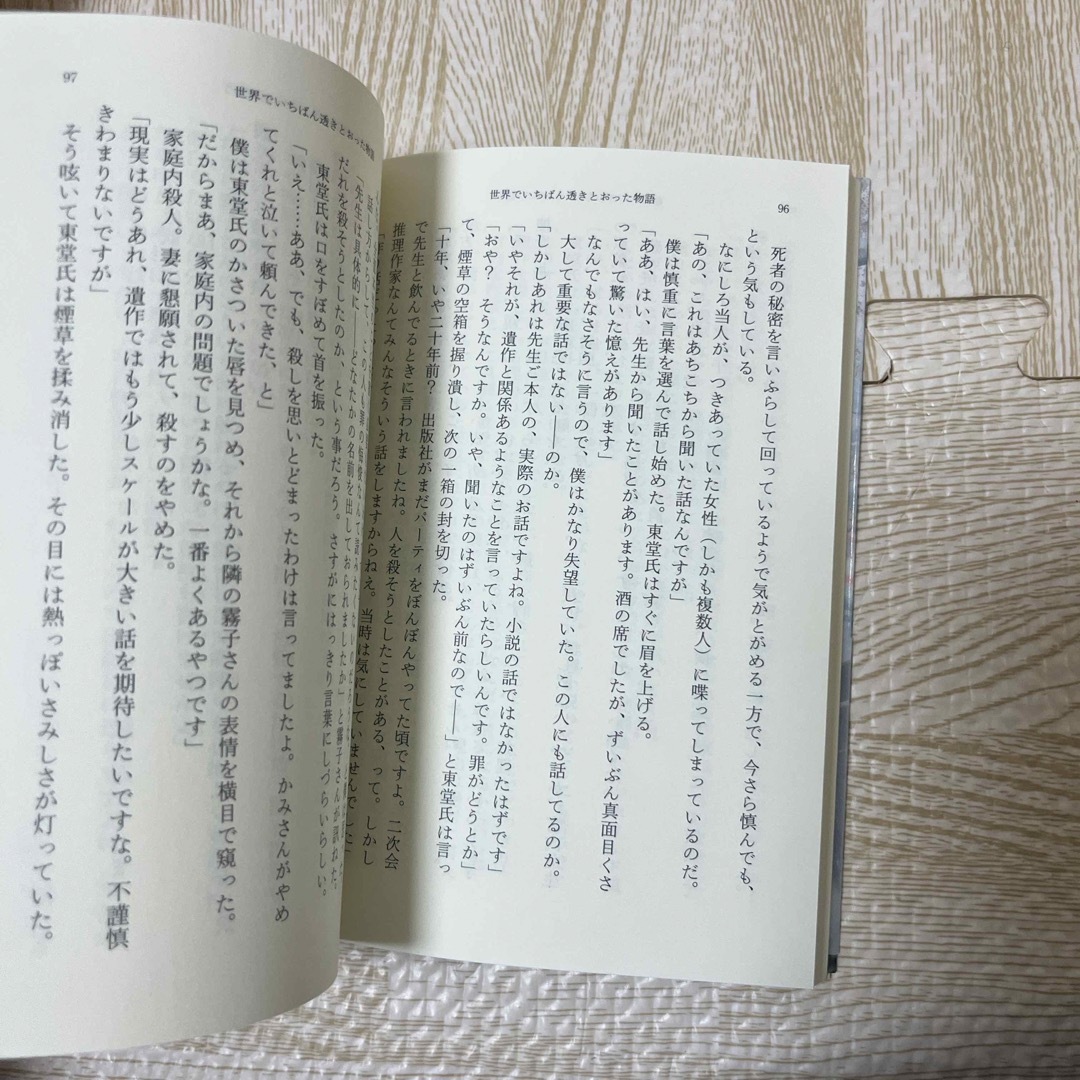 世界でいちばん透きとおった物語
96
死者の秘密を言いふらして回っているようで気がとがめる一方で、今さら慎んでも、
という気もしている。
なにしろ当人が、つきあっていた女性（しかも複数人）に喋ってしまっているのだ。
「あの、これはあちこちから聞いた話なんですが」
僕は慎重に言葉を選んで話し始めた。東堂氏はすぐに眉を上げる。
「ああ、はい、先生から聞いたことがあります。酒の席でしたが、ずいぶん真面目くさ
っていて驚いた憶えがあります」
なんでもなさそうに言うので、僕はかなり失望していた。この人にも話してるのか。
大して重要な話ではない――のか。
「しかしあれは先生ご本人の、実際のお話ですよね。小説の話ではなかったはずです」
「いやそれが、遺作と関係あるようなことを言っていたらしいんです。罪がどうとか」
「おや？　そうなんですか。いや、聞いたのはずいぶん前なので――」と東堂氏は言っ
て、煙草の空箱を握り潰し、次の一箱の封を切った。
「十年、いや二十年前？　出版社がまだパーティをぼんぼんやってた頃ですよ。二次会
で先生と飲んでるときに言われましたね。人を殺そうとしたことがある、って。しかし
推理作家なんてみんなそういう話をしますからねえ。当時は気にしていませんでした」
97
世界でいちばん透きとおった物語
「先生は具体的に――どなたかの名前を出しておられましたか」と霧子さんが訊ねた。
だれを殺そうとしたのか、という事だろう。さすがにはっきり言葉にしづらいらしい。
東堂氏は口をすぼめて首を振った。
「いえ……ああ、でも、殺しを思いとどまったわけは言ってましたよ。かみさんがやめ
てくれと泣いて頼んできた、と」
僕は東堂氏のかさついた唇を見つめ、それから隣の霧子さんの表情を横目で窺った。
「だからまあ、家庭内の問題でしょうかな。一番よくあるやつです」
家庭内殺人。妻に懇願されて、殺すのをやめた。
「現実はどうあれ、遺作ではもう少しスケールが大きい話を期待したいですな。不謹慎
きわまりないですが」
そう呟いて東堂氏は煙草を揉み消した。その目には熱っぽいさみしさが灯っていた。